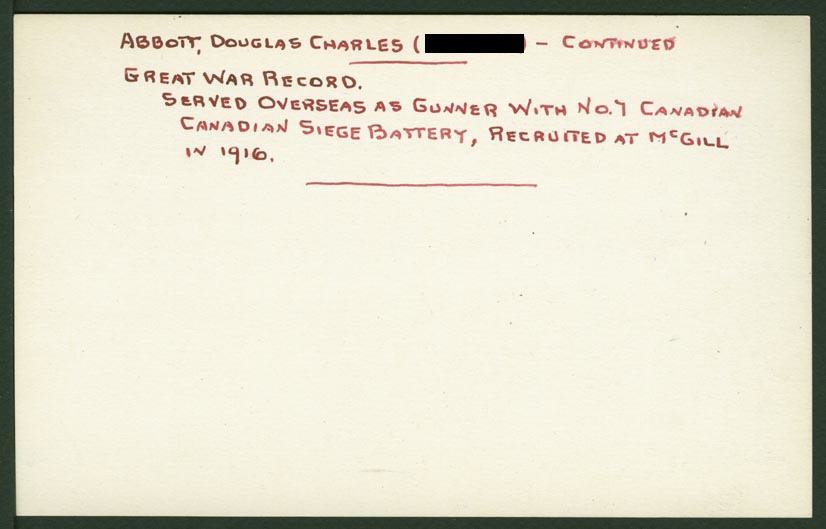 ABBOTT, DOUGLAS CHARLES ( ) - CONTINUED
GREAT WAR RECORD.
SERVED OVERSEAS AS GUNNER WITH NO.7 CANADIAN
CANADIAN SIEGE BATTERY, RECRUITED AT McGILL
IN 1916.